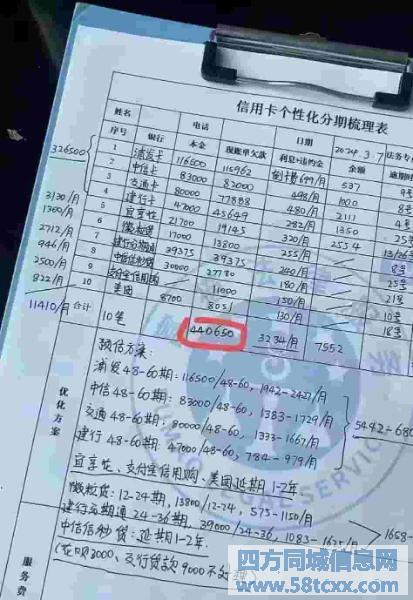 信用卡个性化分期梳理表
姓名 电话 日期 2024.3.7 法务专
序号 银行 本金 现账单欠款 利息+违约金 余额 逾期
1 浦发卡 116500 115962 倒卡费699/月 537 9号
2 中信卡 83000 82000 498/月 1000 8号
3 交通卡 80000 77888 480/月 2111 4号
4 建行卡 47000 45649 282/月 1350 25号
5 宜享花 21700 19145 320/月 2554
6 微粒贷 17000 13800 255/月
7 39375 39375 240/月 18号
8 30000 27780 180/月 25号
9 支付宝信用购 11000 150/月 21号
10 美团 8700 8051 130/月 10号
326500
3130/月
1300/月
2712/月
946/月
2500/月
822/月
11410/月 合计 10笔 440650 3234/月 7552 18号
优化方案
预估方案:
浦发48-60期:116500/48-60, 1942-2427/月
中信48-60期:83000/48-60, 1383-1729/月
交通48-60期:80000/48-60, 1333-1667/月
建行48-60期:47000/48-60, 784-979/月
5442-680
宜享花、支付宝信用购、美团延期1-2年
微粒贷:12-24期, 13800/12-24, 575-1150/月
建行分期通24-36期, 39000/24-36, 1083-1625/月
1658-
中信信秒贷:延期1-2年
(花呗3000、交行贷款9000不处理)
服务费
四方同城信息网
www.58tcxx.com